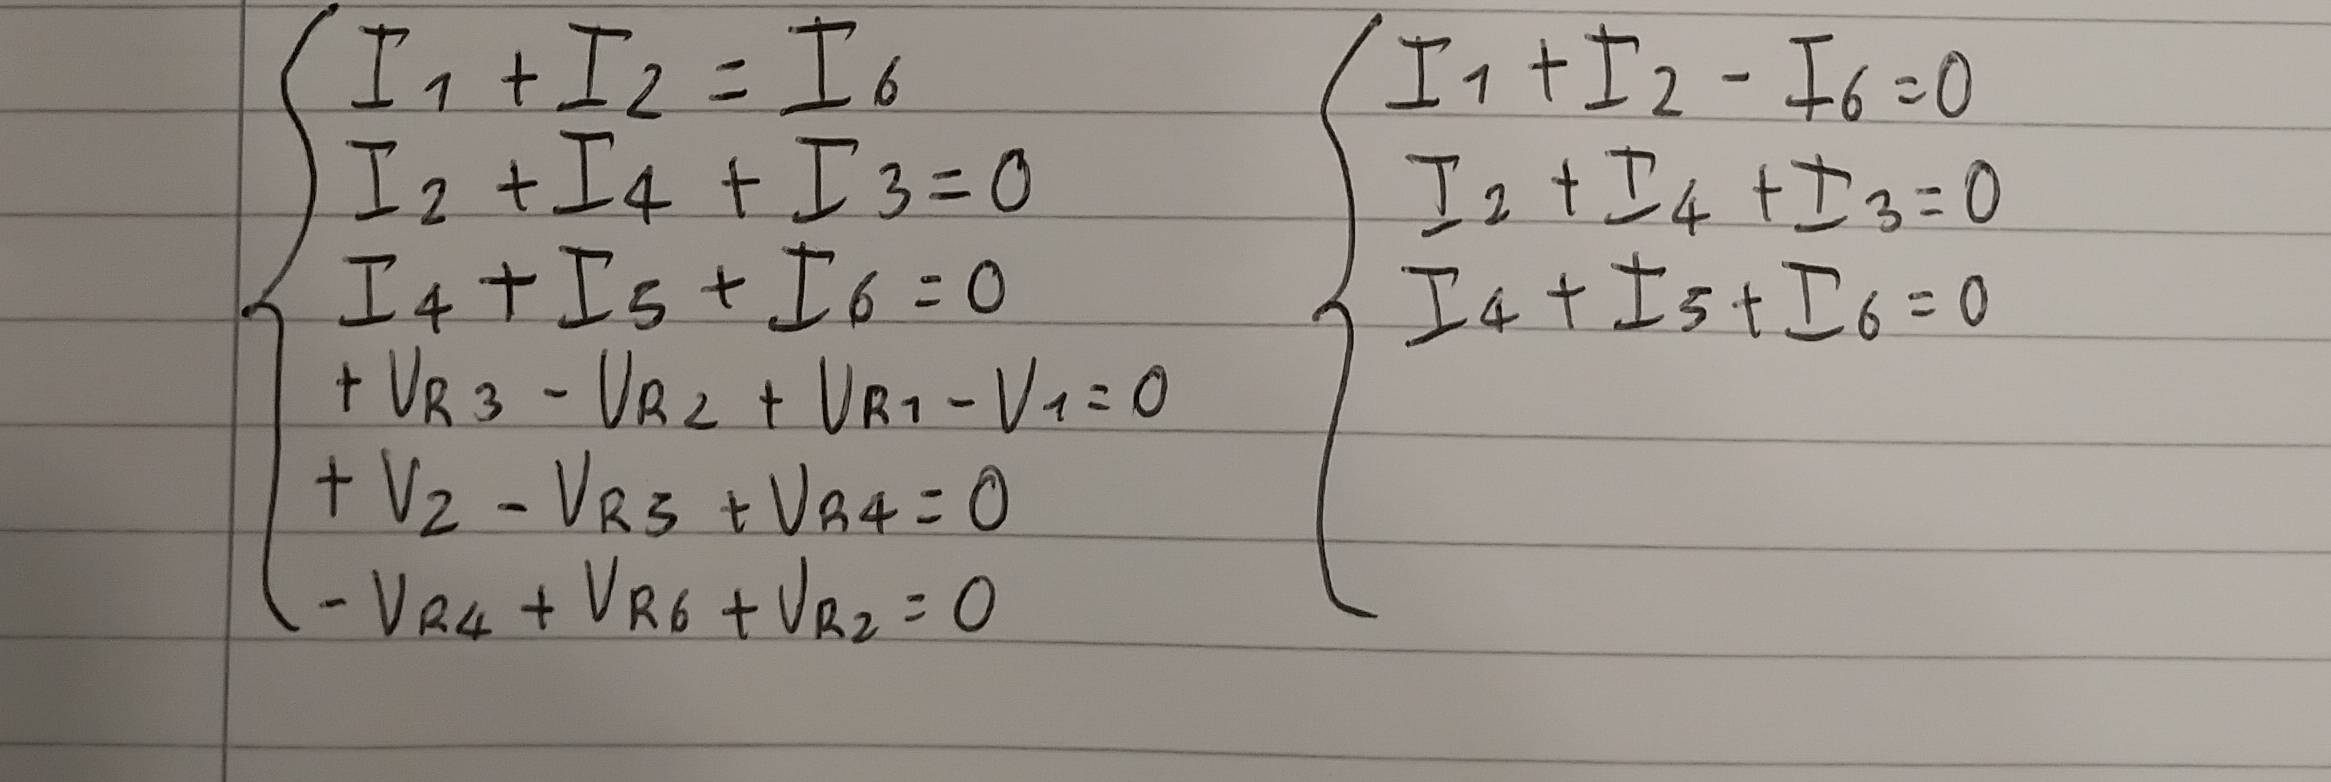 I1 + I2 = I6
I2 + I4 + I3 = 0
I4 + I5 + I6 = 0
+ VR3 - VR2 + VR1 - V1 = 0
+ V2 - VR5 + VR4 = 0
- VR4 + VR6 + VR2 = 0
I1 + I2 - I6 = 0
I2 + I4 + I3 = 0
I4 + I5 + I6 = 0